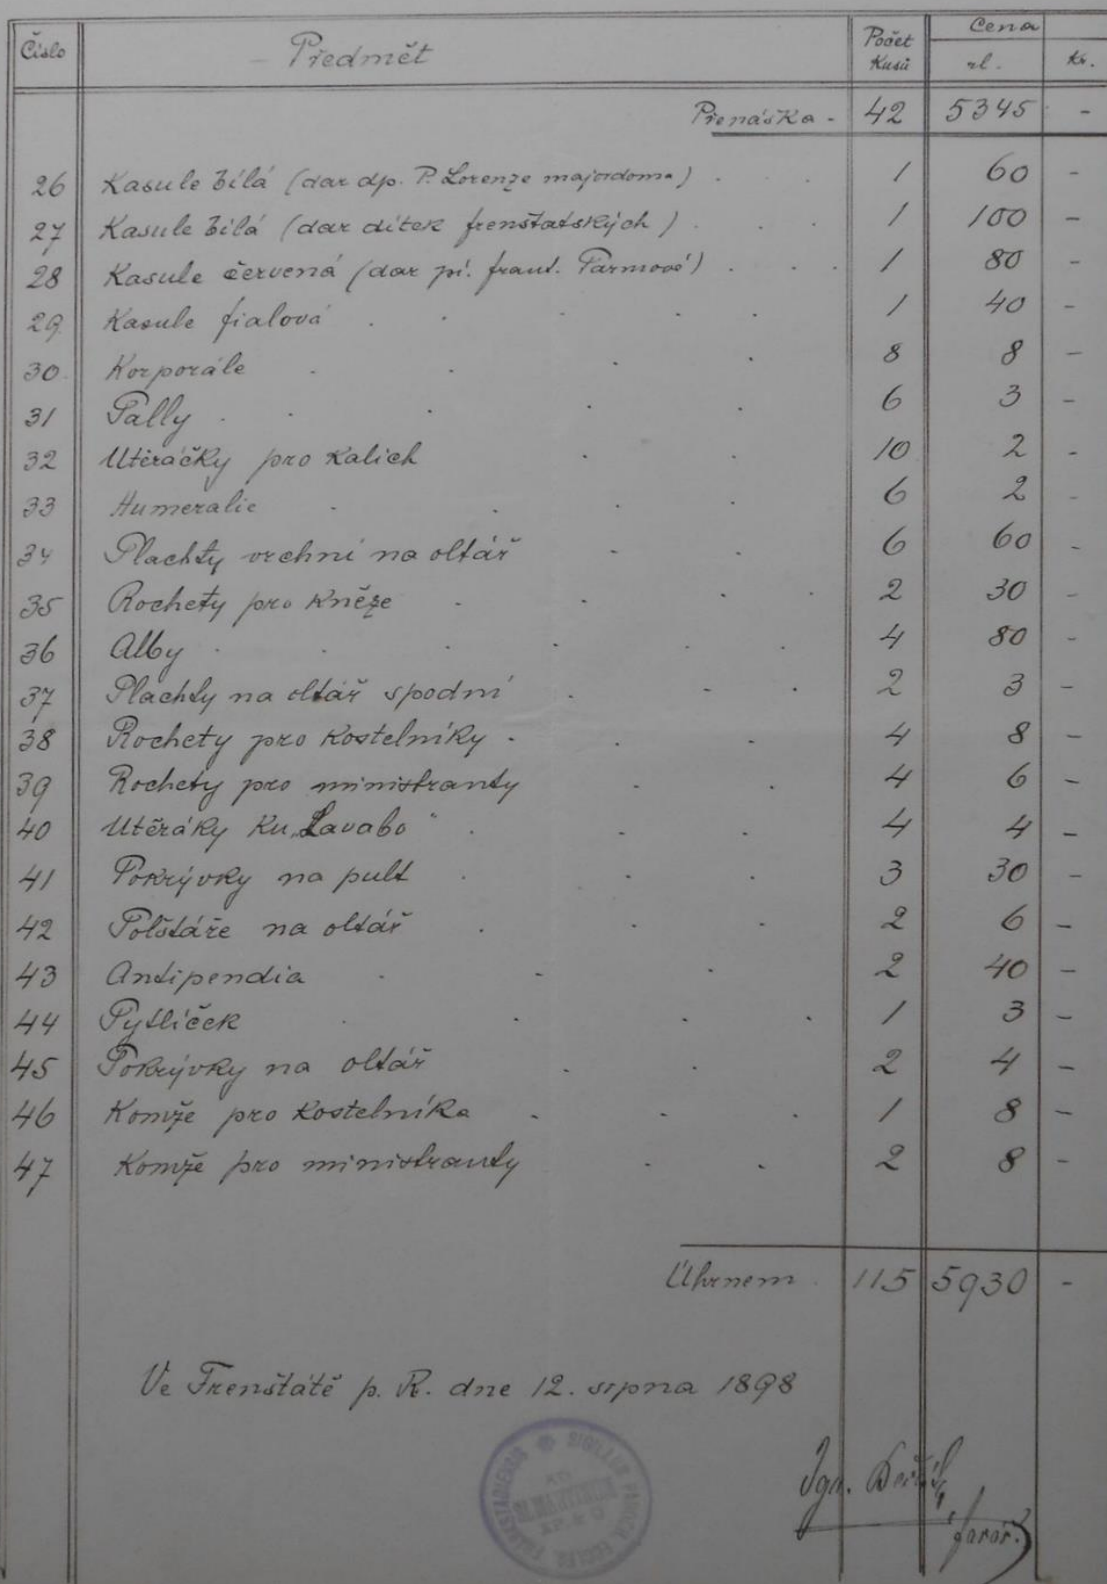 Číslo Předmět Počet Kusů Cena zl. Kr.
Přenáška - 42 5345 -
26 Kasule bílá (dar dp. P. Lorenze majordoma) 1 60 -
27 Kasule bílá (dar dítek frenštatských) 1 100 -
28 Kasule červená (dar pí. frant. Parmové) 1 80 -
29 Kasule fialová 1 40 -
30 Korporále 8 8 -
31 Pally 6 3 -
32 Utěráčky pro Kalich 10 2 -
33 Humeralie 6 2 -
34 Plachty vrchní na oltář 6 60 -
35 Rochety pro Kněze 2 30 -
36 Alby 4 80 -
37 Plachty na oltář spodní 2 3 -
38 Rochety pro Kostelníky 4 8 -
39 Rochety pro ministranty 4 6 -
40 Utěráky Ku „Lavabo" 4 4 -
41 Pokrývky na pult 3 30 -
42 Polštáře na oltář 2 6 -
43 Antipendia 2 40 -
44 Pytlíček 1 3 -
45 Pokrývky na oltář 2 4 -
46 Komže pro Kostelníka 1 8 -
47 Komže pro ministranty 2 8 -
Úhrnem 115 5930 -
Ve Frenštátě p. R. dne 12. srpna 1898
Ign.
farář.